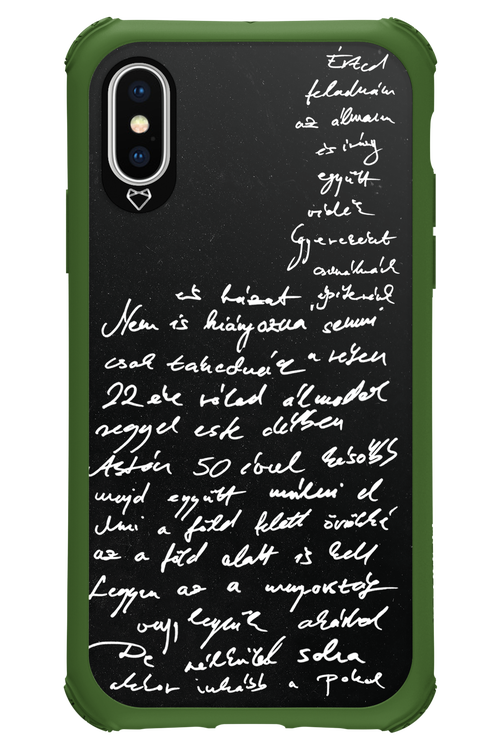 Érted
feladnám
az álmain
és így
együtt
vidék
Gyerekeket
csinálnánk
és házat építenénk
Nem is hiányozna semmi
csak takednék a réten
22 éve rólad álmodok
reggel este délben
Aztán 50 évvel később
majd együtt múlni el
Ami a föld felett örökké
az a föld alatt is kell
Legyen az a mennyország
vagy legyünk akárhol
De nélküled soha
akkor inkább a pokol